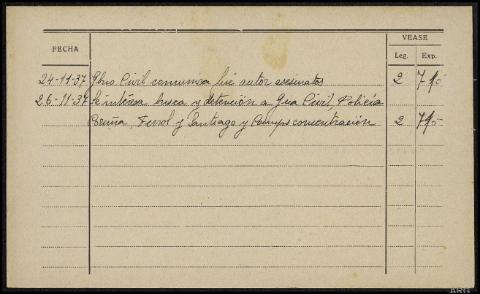 VEASE
FECHA Leg. Exp.
24-11-37 Gbno Civil comunica fué autor asesinatos 2 715
26-11-37 Se intéresa busca y detención a Gua Civil, Policía
Coruña, Ferrol y Santiago y Camps concentración 2 715